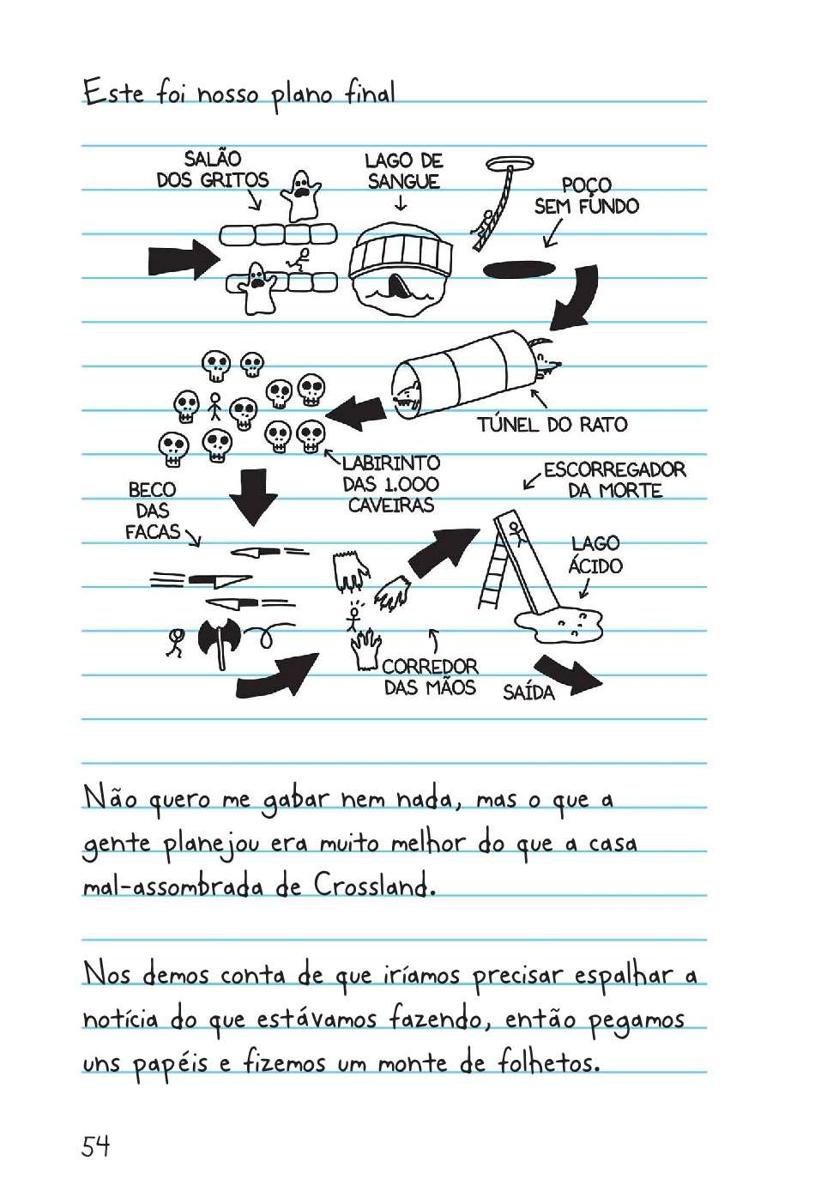 Este foi nosso plano final
SALÃO
DOS GRITOS
LAGO DE
SANGUE
POÇO
SEM FUNDO
TÚNEL DO RATO
LABIRINTO
DAS 1.000
CAVEIRAS
ESCORREGADOR
DA MORTE
BECO
DAS
FACAS
LAGO
ÁCIDO
CORREDOR
DAS MÃOS
SAÍDA
Não quero me gabar nem nada, mas o que a
gente planejou era muito melhor do que a casa
mal-assombrada de Crossland.
Nos demos conta de que iríamos precisar espalhar a
notícia do que estávamos fazendo, então pegamos
uns papéis e fizemos um monte de folhetos.
54